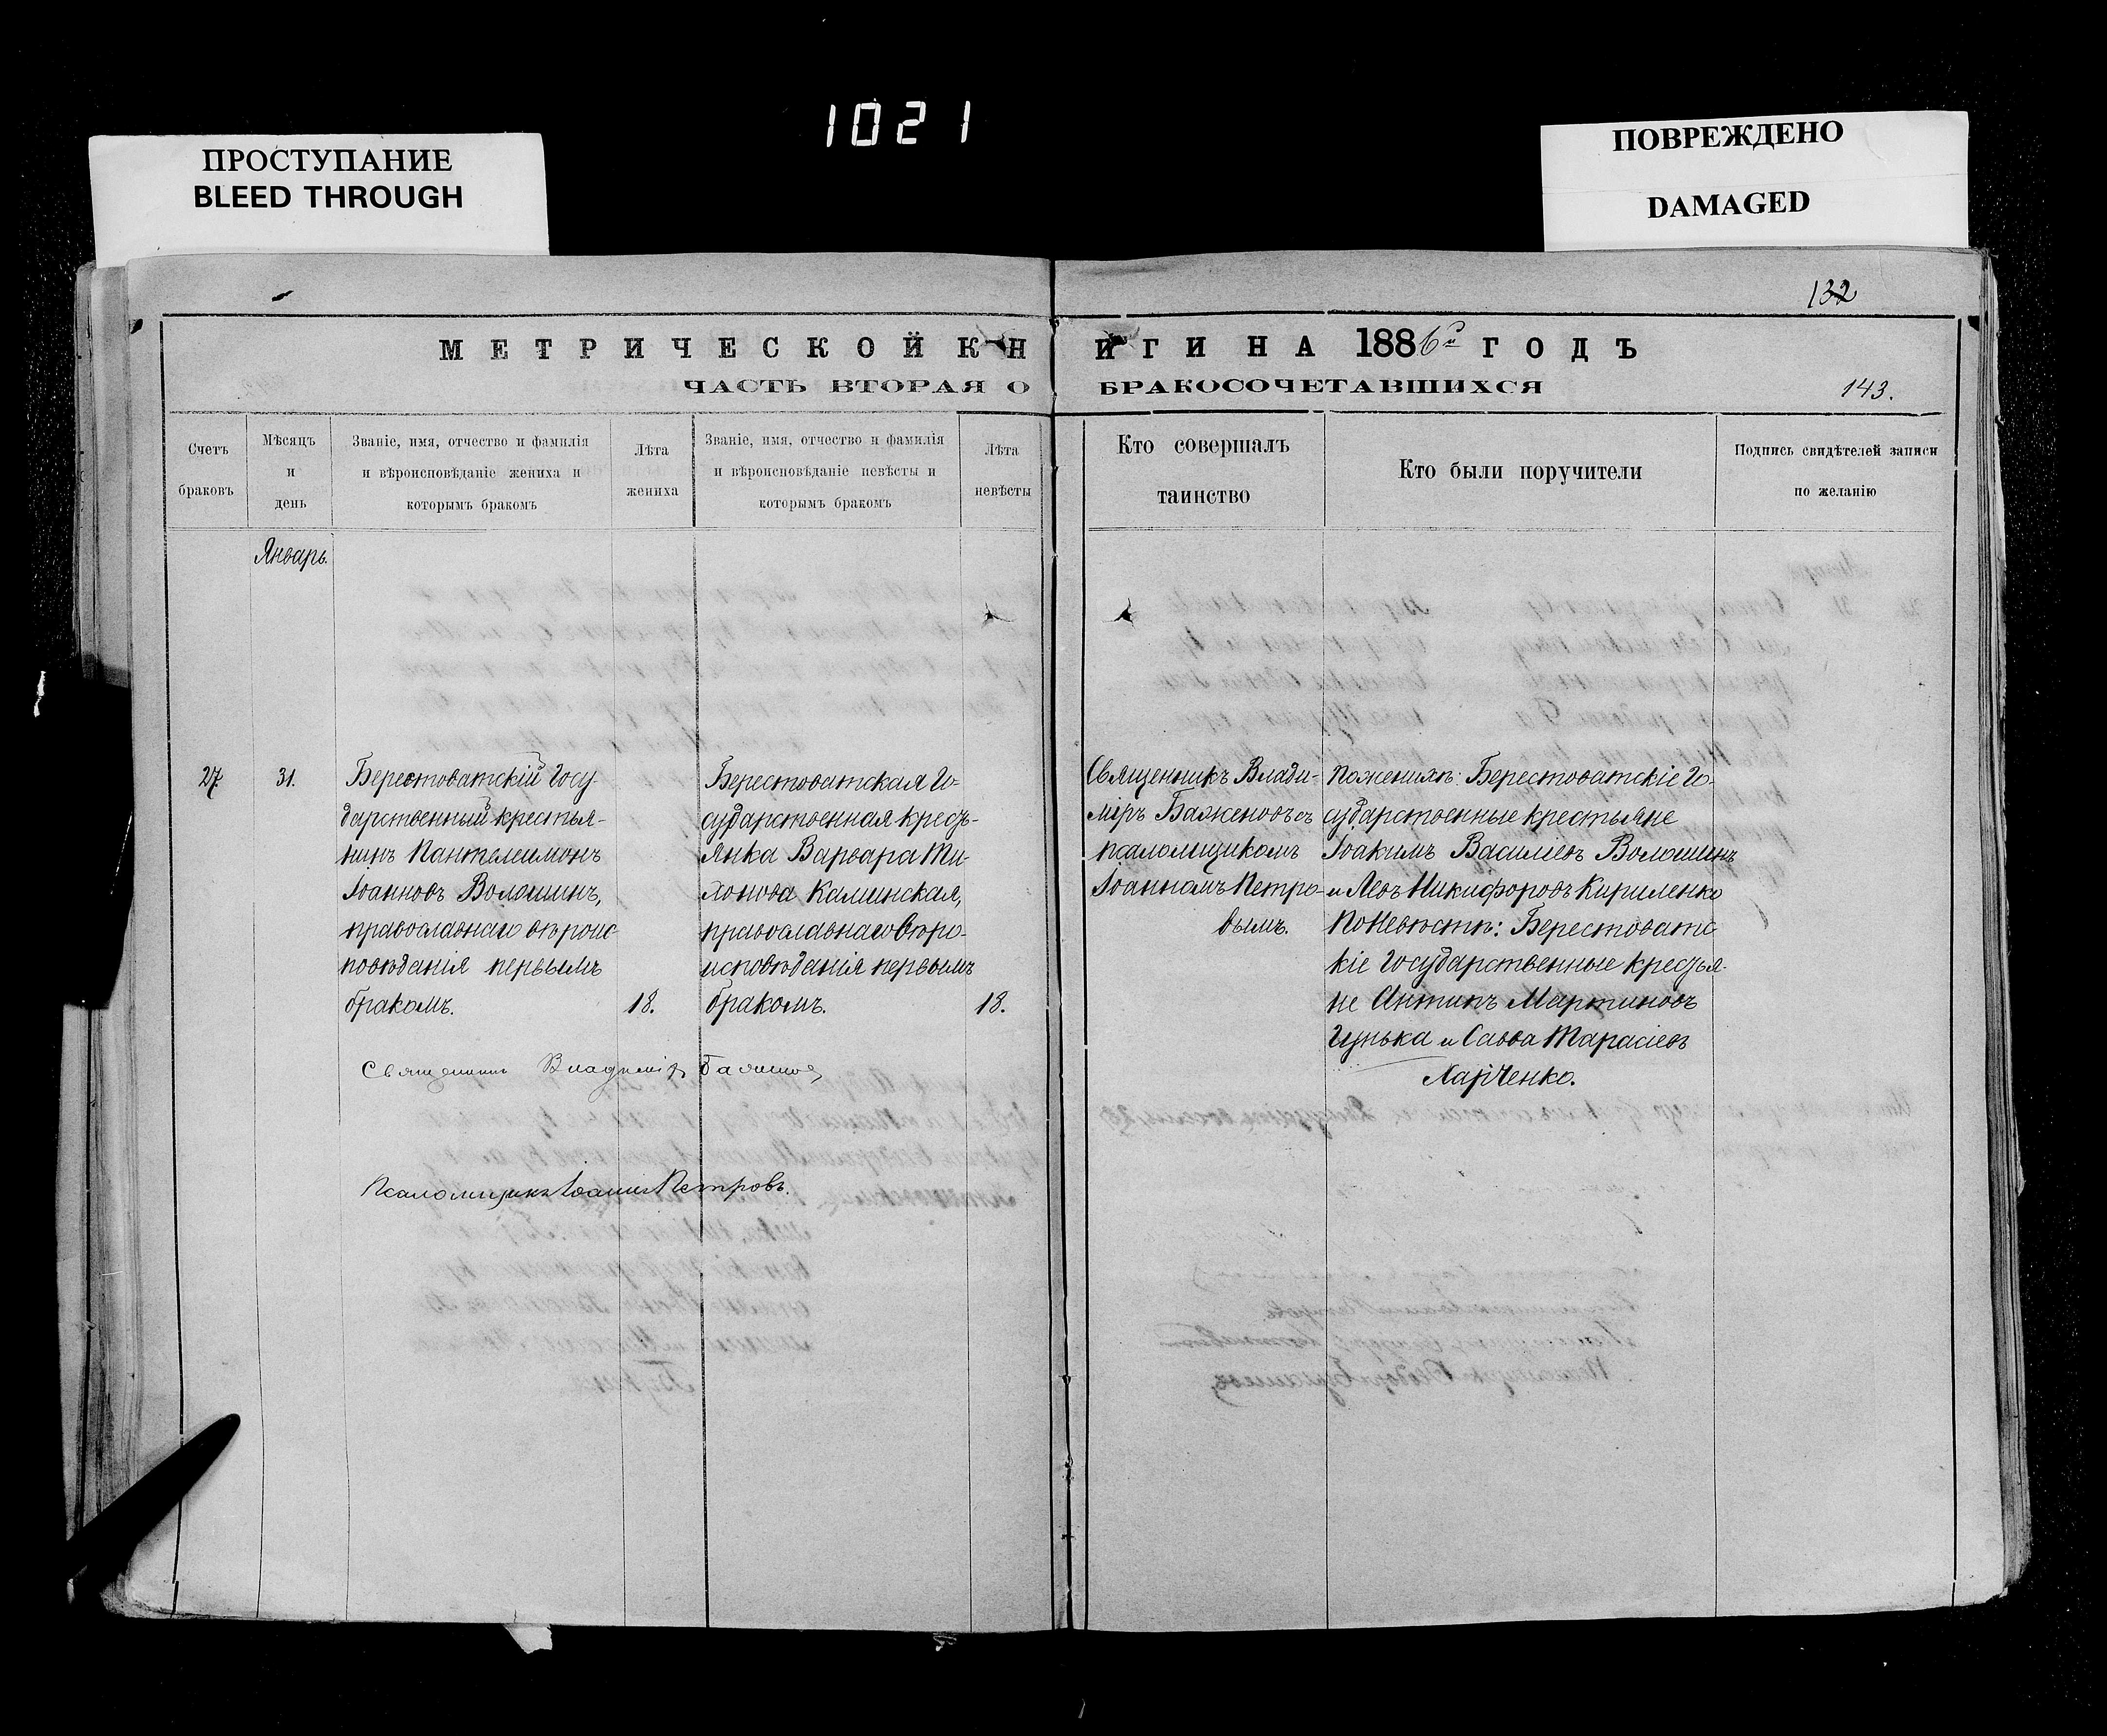 1021
ПРОСТУПАНИЕ
BLEED THROUGH
ПОВРЕЖДЕНО
DAMAGED
132
МЕТРИЧЕСКОЙ КНИГИ НА 1886й ГОДЪ
ЧАСТЬ ВТОРАЯ О БРАКОСОЧЕТАВШИХСЯ
143.
Счетъ
браковъ
Мѣсяцъ
и
день
Званіе, имя, отчество и фамилія
и вѣроисповѣданіе жениха и
которымъ бракомъ
Лѣта
жениха
Званіе, имя, отчество и фамилія
и вѣроисповѣданіе невѣсты и
которымъ бракомъ
Лѣта
невѣсты
Кто совершалъ
таинство
Кто были поручители
Подпись свидѣтелей записи
по желанію
Январь.
27
31.
Берестоватскій Госу-
дарственный крестья-
нинъ Пантелеимонъ
Іоанновъ Волошинъ,
православнаго вѣроис-
повѣданія первымъ
бракомъ.
18.
Берестоватская Го-
сударственная крестъ-
янка Варвара Ти-
хонова Калинская,
православнаго вѣро-
исповѣданія первымъ
бракомъ.
18.
Священникъ Влади-
міръ Баженовъ съ
псаломщикомъ
Іоанномъ Петро-
вымъ.
По женихѣ: Берестоватскіе Го-
сударственные крестьяне
Іоакимъ Василіевъ Волошинъ
и Левъ Никифоровъ Кириленко
По Невѣстѣ: Берестоватс-
кіе Государственные крестья-
не Антипъ Мартиновъ
Гунька и Савва Тарасіевъ
Харченко.
Священникъ Владиміръ Баженовъ
Псаломщикъ Іоаннъ Петровъ.